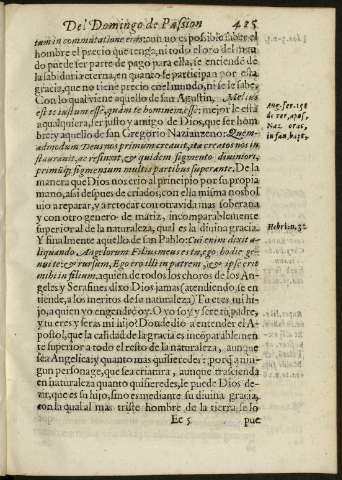 Del Domingo de Passion 425
tum in commutatione eius: con no es possible saber el
hombre el precio que tenga, ni todo el oro del mun
do puede ser parte de pago para ella, se entiende de
la sabiduria eterna, en quanto se participa por esta
gracia, que no tiene precio en el mundo, ni se le sabe.
Con lo qual viene aquello de san Agustin, Melius
est te iustum esse, quàm te hominem esse; mejor le està
a qualquiera, ser justo y amigo de Dios, que ser hom
bre: y aquello de san Gregorio Nazianzeno: Quem-
admodum Deus nos primum creauit, ita creatos nos in
staurauit, ac refinxit, & quidem figmento diuiniori,
primíque figmentum multis partibus superante. De la
manera que Dios nos criò al principio por su propia
mano, assi despues de criados, con ella misma nos bol
uio a reparar, y a retocar con otra vida mas soberana
y con otro genero de matiz, incomparablemente
superior al de la naturaleza, qual es la diuina gracia.
Y finalmente aquello de san Pablo: Cui enim dixit a-
liquando Angelorum Filius meus es tu, ego hodie ge-
nui te: & rursum, Ego ero illi in patrem, & ipse erit
mihi in filium, a quien de todos los choros de los An-
geles y Serafines dixo Dios jamas (atendiendo, se en-
tiende, a los meritos de su naturaleza) Tu eres mi hi-
jo, a quien yo engendrè oy. O yo soy y serè tu padre,
y tu eres y seras mi hijo? Donde diò a entender el A-
postol, que la calidad de la gracia es incomparablemen
te superior a todo el resto de la naturaleza, aunque
sea Angelica: y quanto mas quisieredes: porque a nin-
gun personage, que sea criatura, aunque trascienda
en naturaleza quanto quisieredes, le puede Dios de-
zir, que es su hijo, sino es mediante su diuina gracia,
con la qual al mas triste hombre de la tierra, se lo
Ee 5 pue
Aug. ser. 198
de ver. apos.
Naz. orat.
in san. bapt.
Hebr.